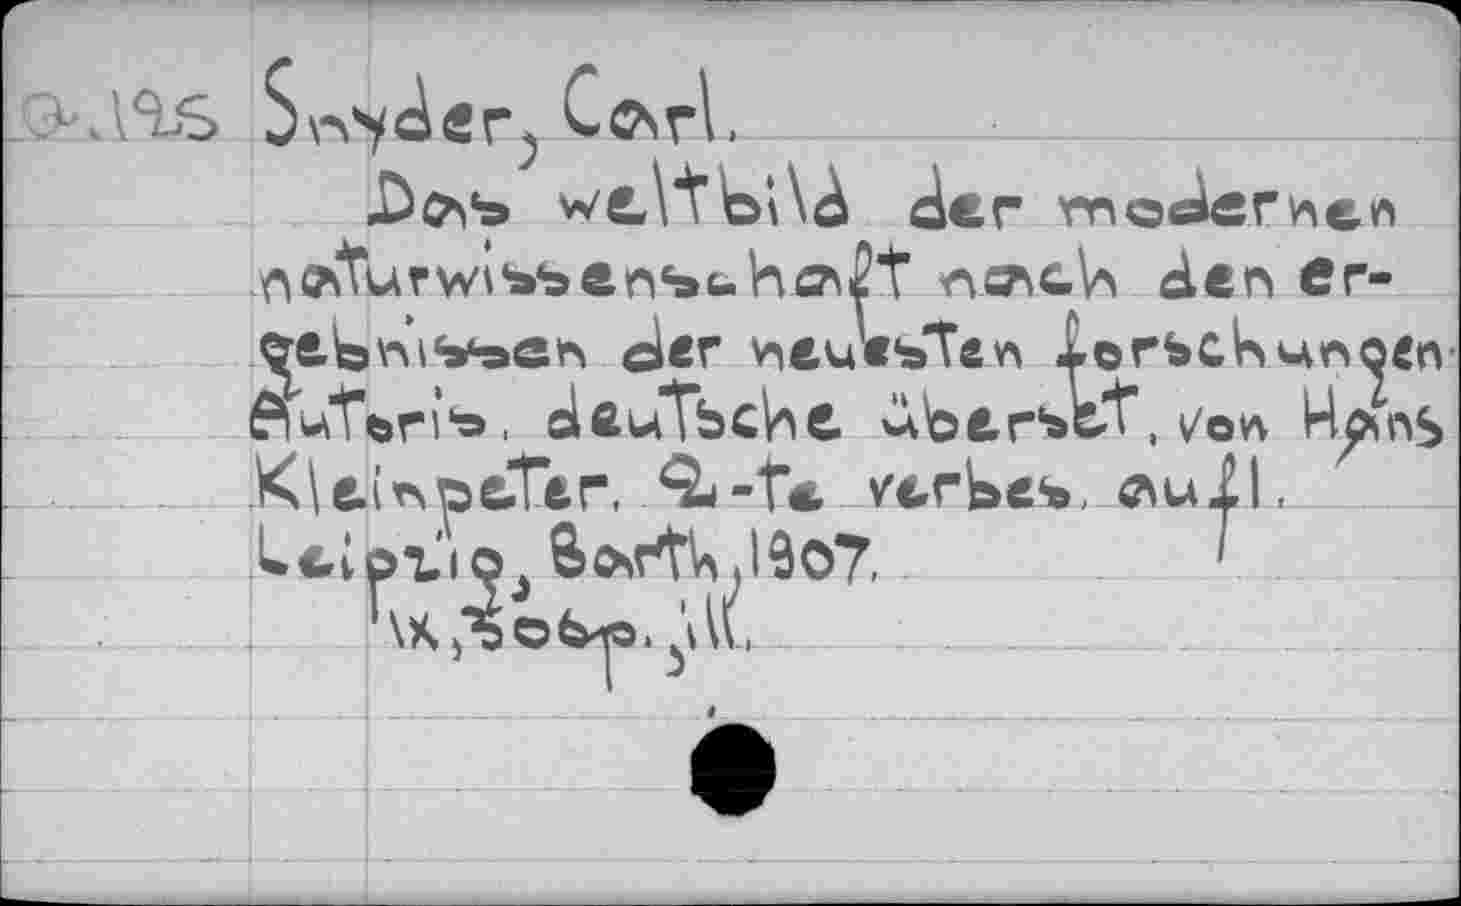 Snyder, Carl.
Das weltbild der modernen
naturwissenschaft nach den er-
gebnissen der neuesten forschungen
Autoris. deutsche überset. von Hans
Kleinpeter. 2-te verbes. aufl.
Leipzig, Barth, 1907.
ill.